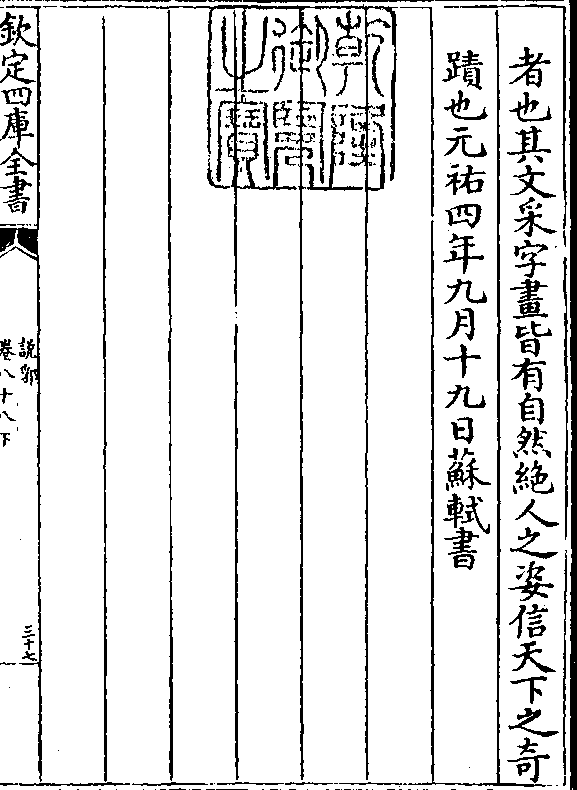 者也其文采字畫皆有自然絶人之姿信天下之奇
蹟也元祐四年九月十九日蘇軾書
乾隆御覽之寶
欽定四庫全書
說郛
卷八十八下
三十七